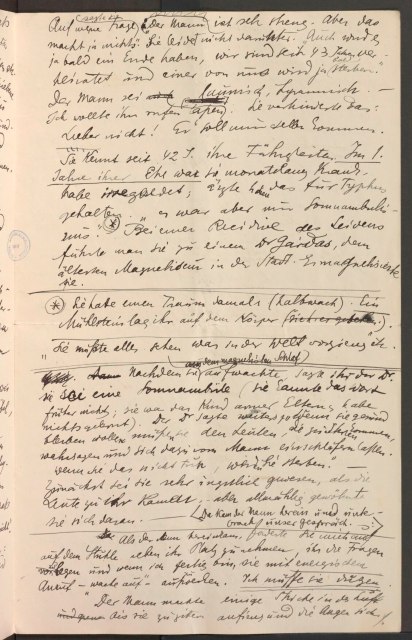 Auf meine Frage: "der Mann ist sehr streng. Aber das
macht ja nichts. Sie leidet nicht darunter. Auch wird
ja bald ein Ende haben, wir sind seit 43 Jahren ver-
heiratet und einer von uns wird ja bald sterben."
Der Mann sei launisch, tyrannisch. —
Ich wollte ihn rufen lassen. Sie verhinderte das:
Lieber nicht! Er soll nur selber kommen.
Sie kennt seit 42 J. ihre Fähigkeiten. Im 1.
Jahre ihrer Ehe war sie monatelang krank,
habe irregeredet; Ärzte haben das für Typhus
gehalten "es war aber nur Somnambulis-
mus". Bei einer Recidive des Leidens
führte man sie zu einem Dr Gárdos, dem
ältesten Magnetiseur in der Stadt. Er magnetisierte
sie.
Sie habe einen Traum damals (halbwach). Ein
Mühlstein lag ihr auf dem Körper
"Sie müßte alles sehen was in der Welt vorging"
Nachdem sie aus dem magnetischen Schlaf aufwachte, sagte ihr der Dr.
sie sei eine Somnambule (sie kannte das Wort
früher nicht; sie war das Kind armer Eltern, habe
nichts gelernt). Der Dr sagte weiters wenn sie gesund
bleiben wolle, müßte sie den Leuten, die zu ihr kommen,
wahrsagen und sich dazu vom Manne einschläfern lassen.
wenn sie das nicht tut, werde sie sterben. —
Zunächst sei sie sehr ängstlich gewesen, als die
Leute zu ihr kamen, aber allmählig gewöhnte
sie sich daran. — Da kam der Mann herein und unter-
brach unser Gespräch.
Als der Mann hereinkam, forderte sie mich auf
auf dem Stuhle neben ihr Platz zu nehmen, ihr die Fragen
und wenn ich fertig bin, sie mit energischem
Anruf — "wache auf" — aufwecken. Ich mußte sie duzen
Der Mann machte einige Striche in der Luft
bis sie zu gähnen anfieng und die Augen sich